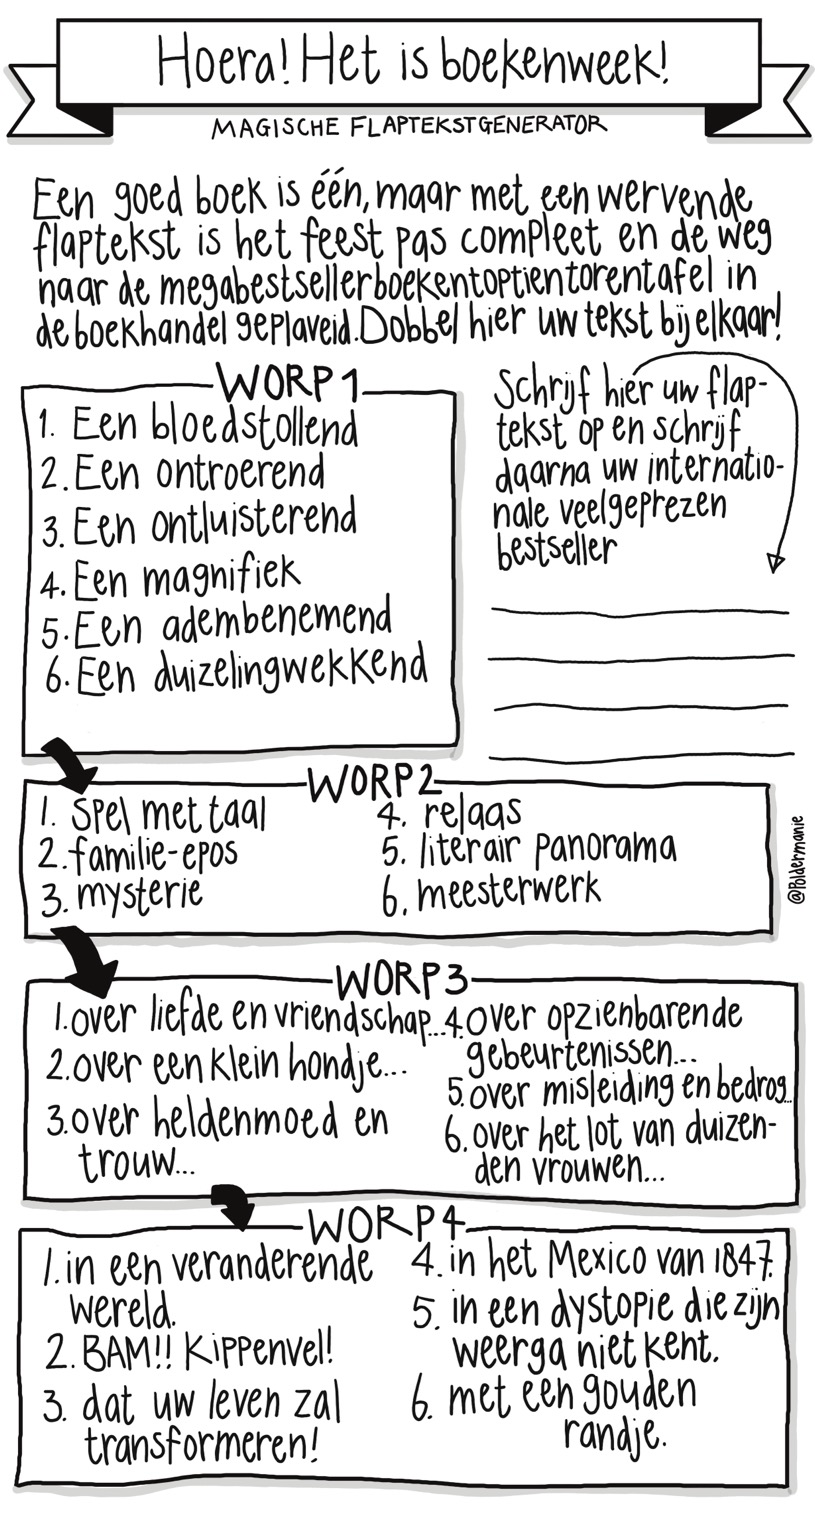 Hoera! Het is boekenweek!
MAGISCHE FLAPTEKSTGENERATOR
Een goed boek is één, maar met een wervende
flaptekst is het feest pas compleet en de weg
naar de megabestsellerboekentoptientorentafel in
de boekhandel geplaveid. Dobbel hier uw tekst bij elkaar!
WORP 1
1. Een bloedstollend
2. Een ontroerend
3. Een ontluisterend
4. Een magnifiek
5. Een adembenemend
6. Een duizelingwekkend
Schrijf hier uw flap-
tekst op en schrijf
daarna uw internatio-
nale veelgeprezen
bestseller
WORP 2
1. spel met taal
2. familie-epos
3. mysterie
4. relaas
5. literair panorama
6. meesterwerk
@Poldermanie
WORP 3
1. over liefde en vriendschap...
2. over een klein hondje...
3. over heldenmoed en
trouw...
4. over opzienbarende
gebeurtenissen...
5. over misleiding en bedrog...
6. over het lot van duizen-
den vrouwen...
WORP 4
1. in een veranderende
wereld.
2. BAM!! Kippenvel!
3. dat uw leven zal
transformeren!
4. in het Mexico van 1847.
5. in een dystopie die zijn
weerga niet kent.
6. met een gouden
randje.